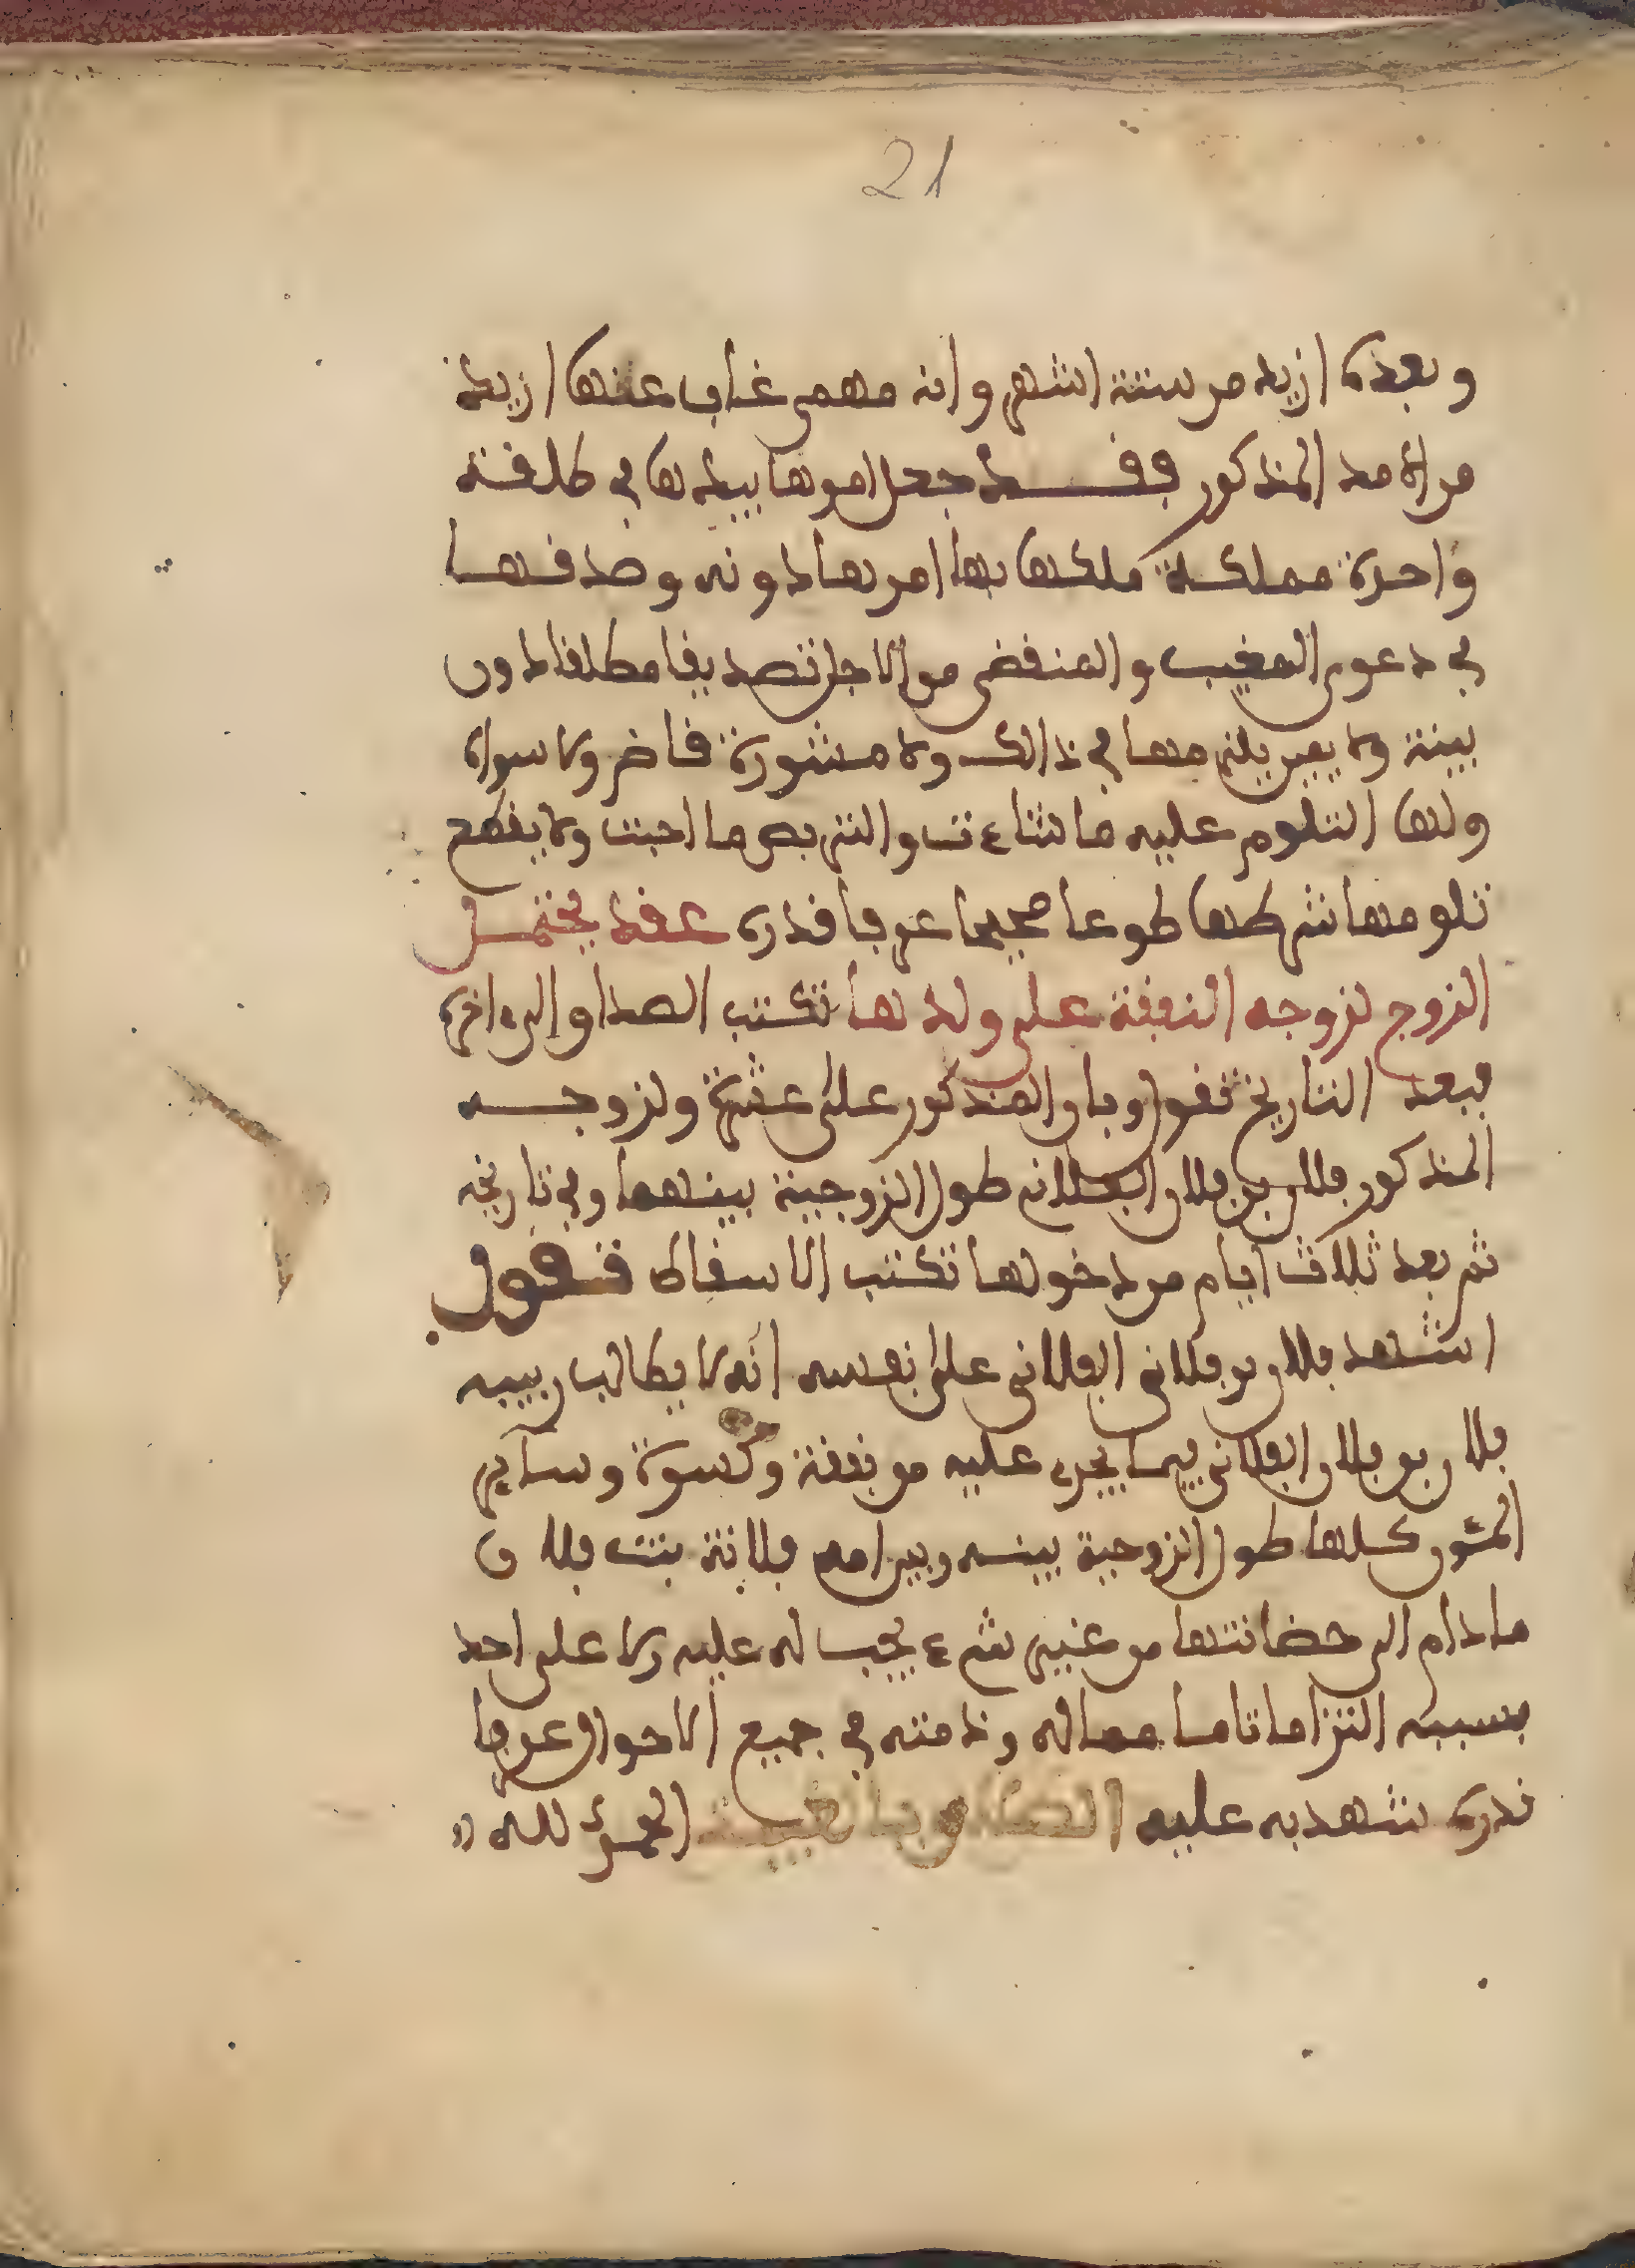 21
وبعده ازيد من ستة اشهر وانه مهمى غاب عنها ازيد
من امد المذكور فقد جعل امرها بيدها في طلقة
واحدة مملكة ملكها بها امرها دونه وصدقها
في دعوى المغيب والمنقضى من الاجل تصديقا مطلقا دون
بينة ولا يمين يلزمها في ذالك ولا مشورة قاض ولا سواه
ولها التلوم عليه ما شاءت والتربص ما احبت ولا يقطع
تلومها شرطها طوعا صحيحا عرفا قدره عقد يحتمل
الزوج لزوجه النفقة على ولدها تكتب الصداق الى اخره
فبعد التاريخ تقول وبان المذكور على عثرة ولزوجه
المذكور فلان بن فلان الفلاني طول الزوجية بينهما وفي تاريخه
ثم بعد ثلاث ايام من دخولها تكتب الاسقاط فتقول
اشهد فلان بن فلاني الفلاني على نفسه انه لا يطالب ربيبه
فلان بن فلان الفلاني فيما يجري عليه من نفقة وكسوة وساير
المئون كلها طول الزوجية بينه وبين امه فلانة بنت فلان
ما دام الى حضانتها من غير شيء يجب له عليه ولا على احد
بسببه التزاما تاما بماله وذمته في جميع الاحوال عرفا
قدره شهد به عليه الحمد لله